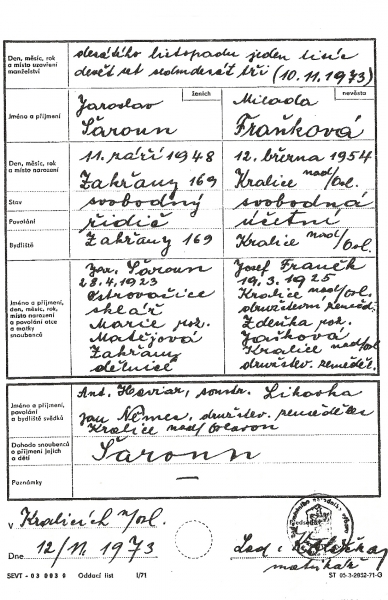 Den, měsíc, rok
a místo uzavření
manželství
desátého listopadu jeden tisíc
devět set sedmdesát tři (10.11.1973)
ženich
nevěsta
Jméno a příjmení
Jaroslav
Šaroun
Milada
Fraňková
Den, měsíc, rok
a místo narození
11. září 1948
Zakřany 169
12. března 1954
Kralice nad/Osl.
Stav
svobodný
svobodná
Povolání
řidič
účetní
Bydliště
Zakřany 169
Kralice nad/Osl.
Jméno a příjmení,
den, měsíc, rok,
místo narození
a povolání otce
a matky
snoubenců
Jar. Šaroun
28.4.1923
Ostrovačice
sklář
Marie roz.
Matějová
Zakřany
dělnice
Josef Franěk
19.3.1925
Kralice nad/Osl.
družstevní zeměděl.
Zdeňka roz.
Kralice nad/Osl.
družstev. zeměděl.
Jméno a příjmení,
povolání
a bydliště svědků
Ant. soustr.
Jan Němec, družstev. zemědělec
Kralice nad Oslavou
Dohoda snoubenců
o příjmení jejich
a dětí
Šaroun
Poznámky
—
V Kralicích n/Osl.
Dne 12/11. 1973
Předseda
Lad.
matrikář
SEVT - 03 093 0 Oddací list I/71 ST 05-3-2932-71-G